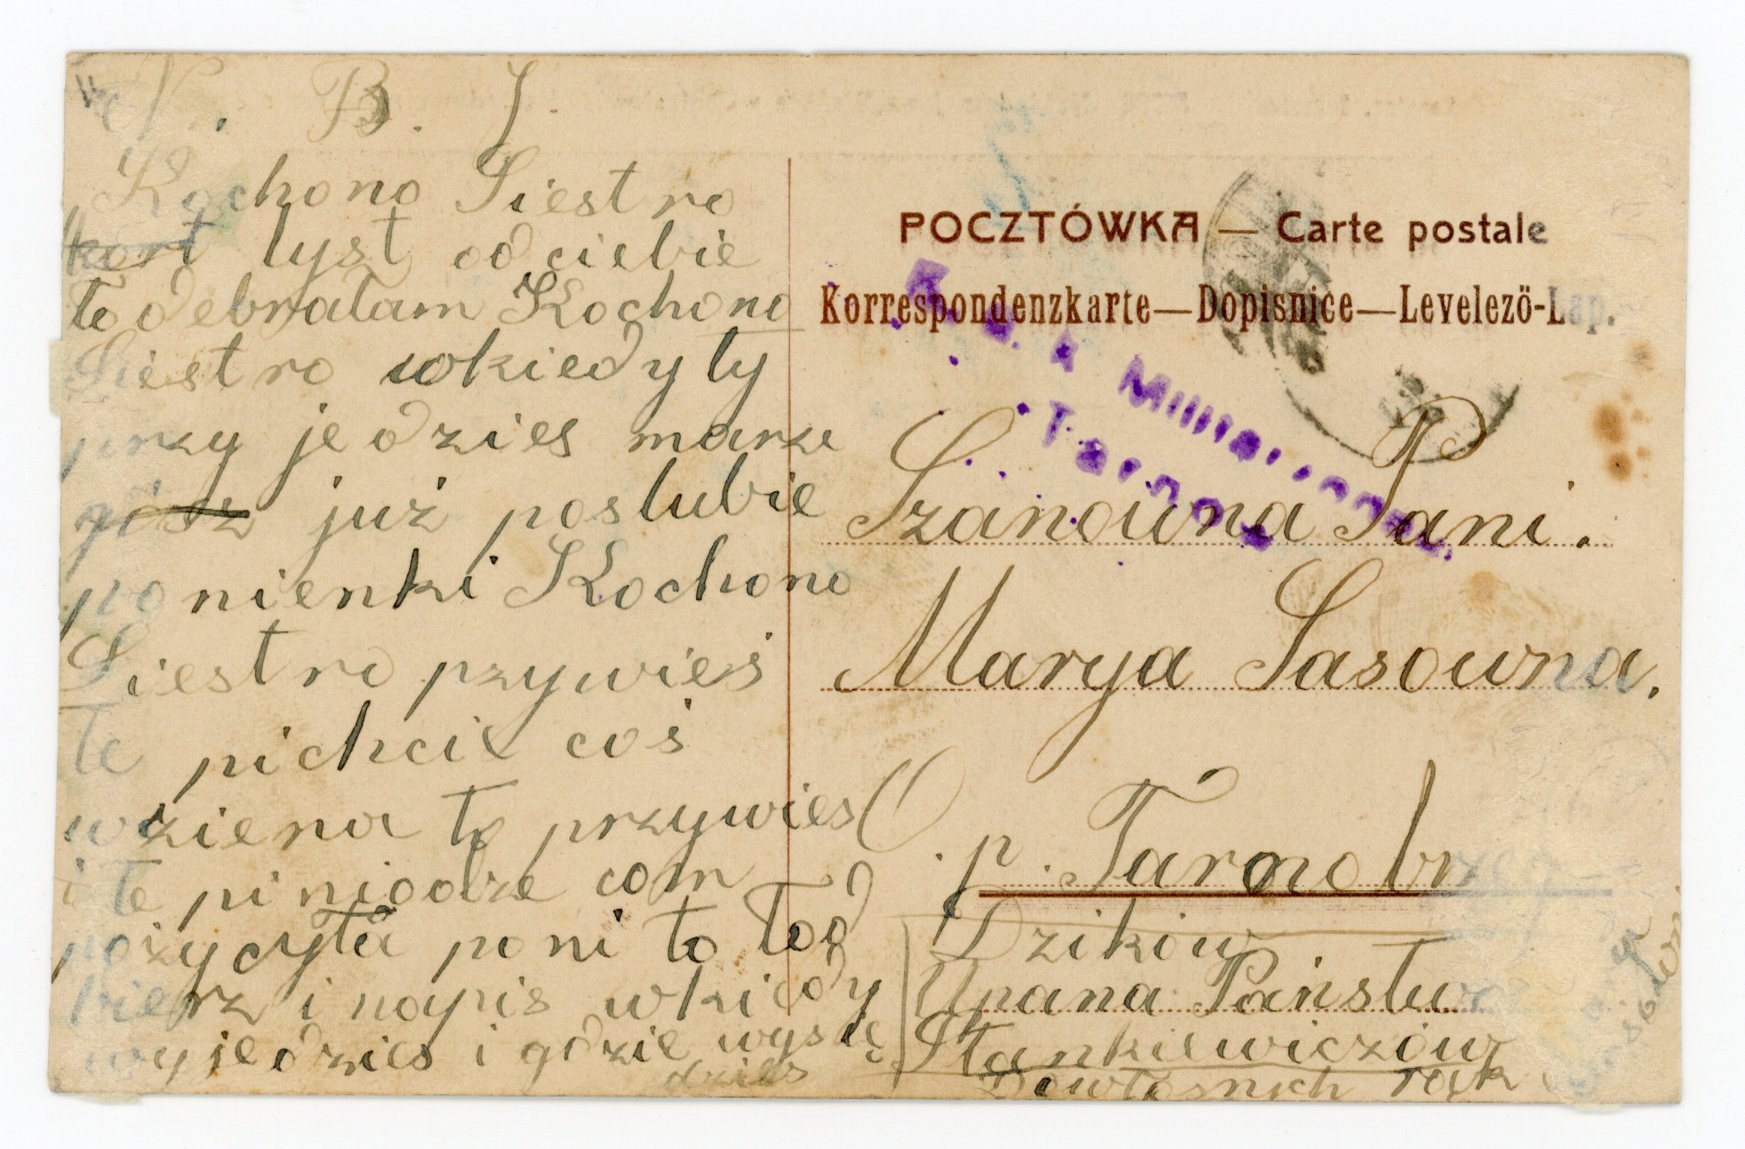 N. B. J.
Kochono Siestro
kort lyst odciebie
to debratam Kochono
Siestro wkiedy ty
przy jedzies marze
już poslubie
ponienki Kochono
Siestro pzywieś
te pichcie coś
wziena to przywies
i te piniodze com
pożycyta poni to Tod
bierz i napis wkiedy
wyjedzies i gdzie wysię
dzies
POCZTÓWKA — Carte postale
Korrespondenzkarte—Dopisnice—Levelező-Lap.
Szanowna Pani.
Marya Sasowna.
O. p. Tarnobrzeg
Dzików
Upana Państwa
Stankiewiczów
Dowłasnych rąk